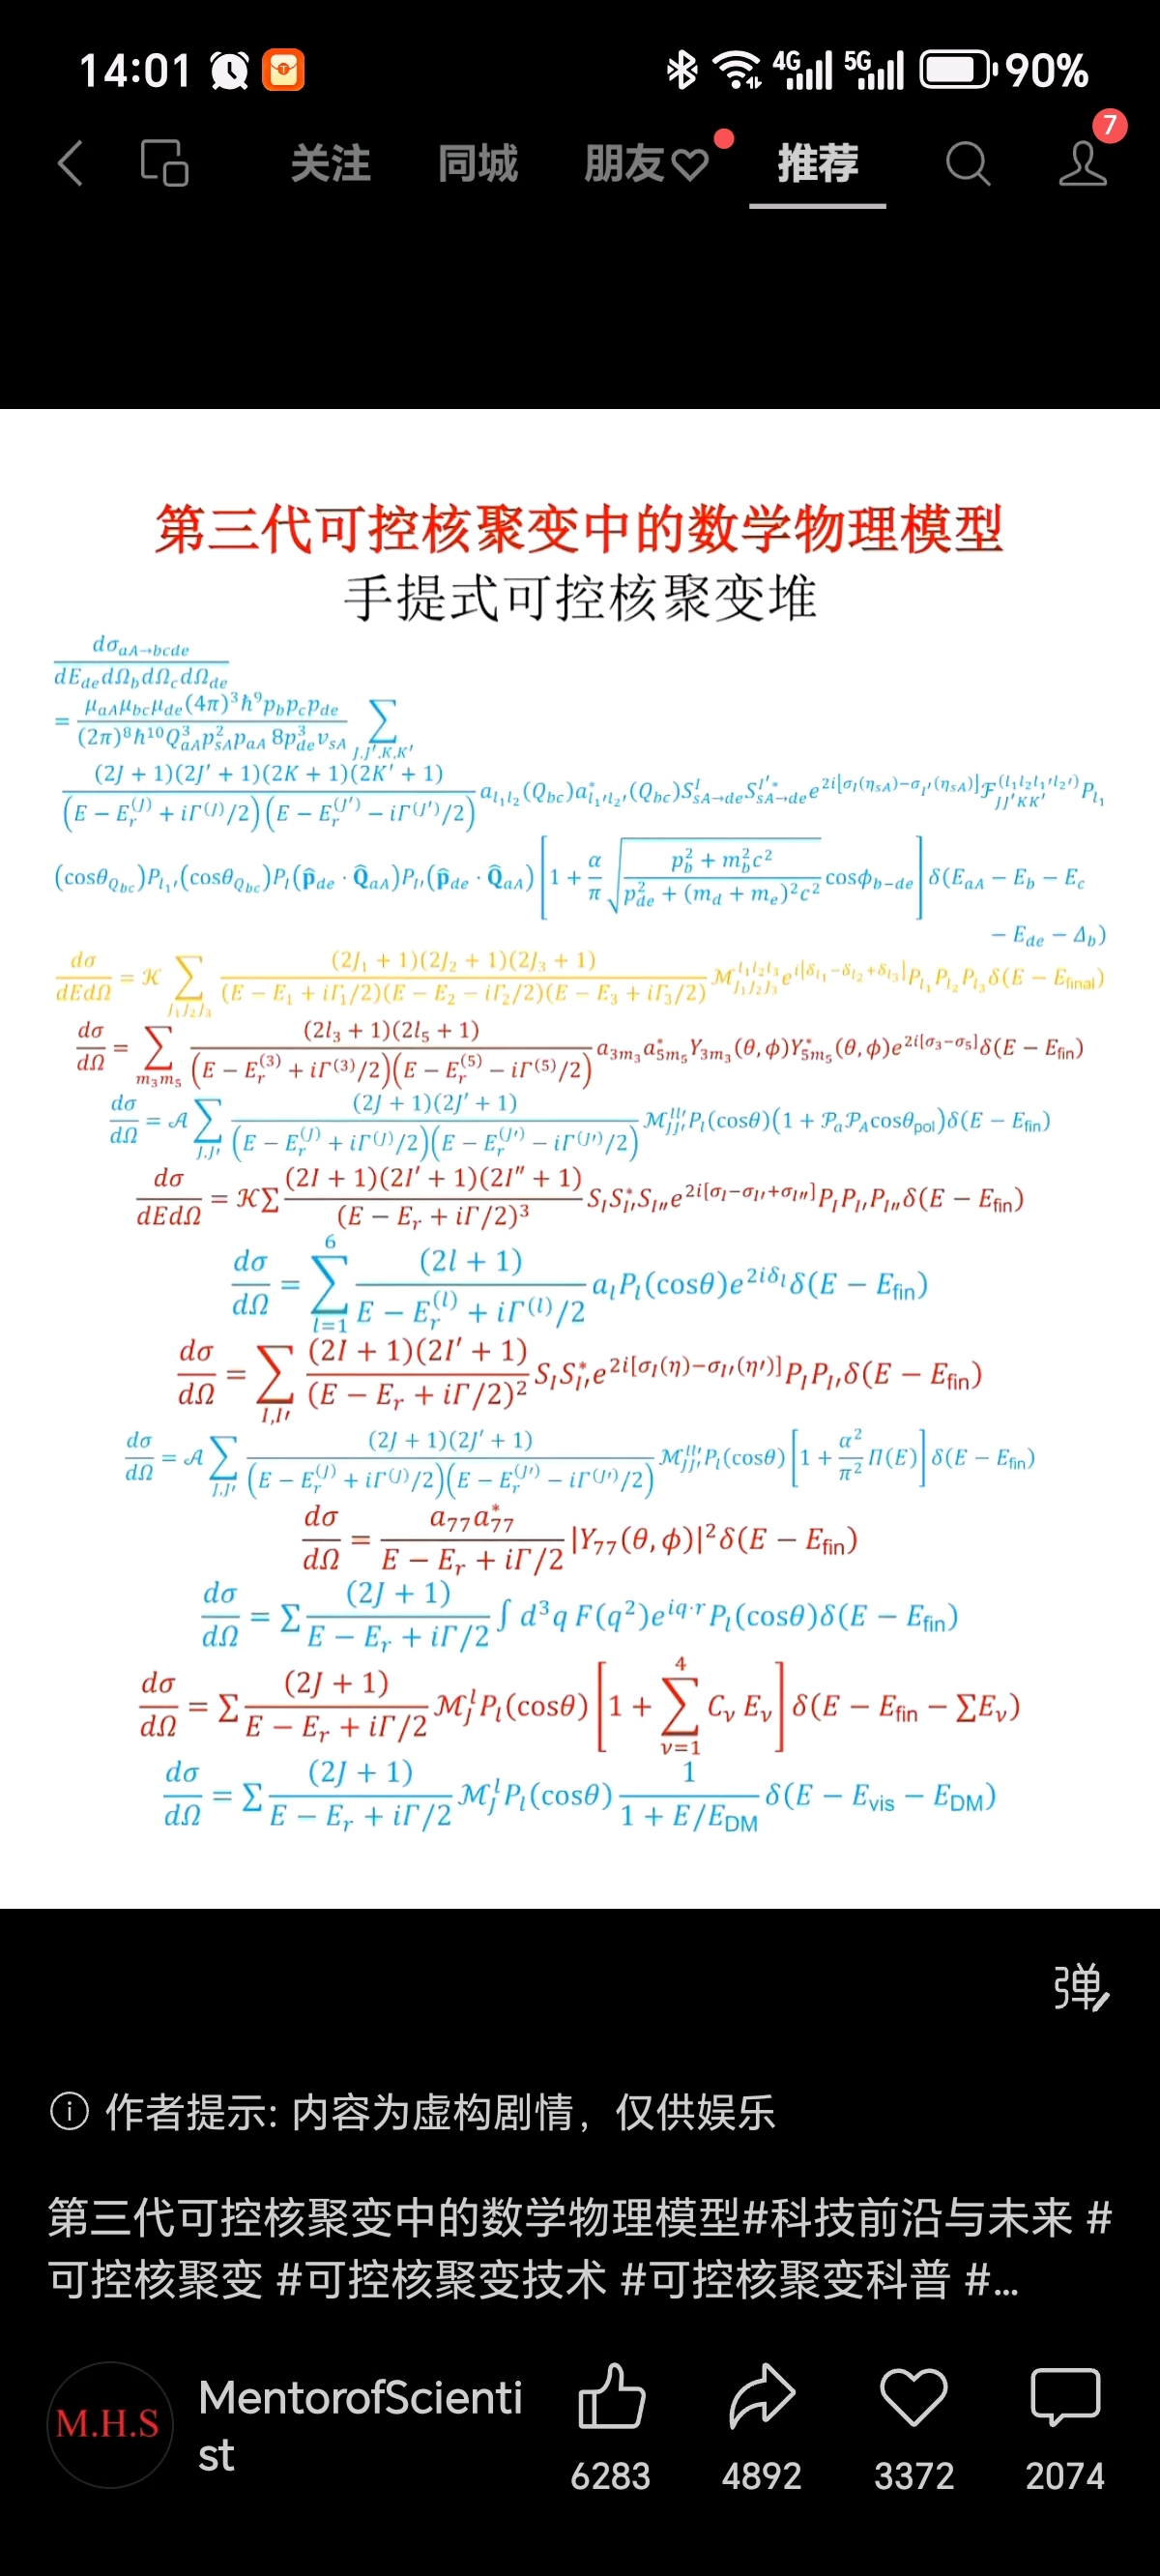 14:01 4G 5G 90%
关注 同城 朋友♡ 推荐 7
第三代可控核聚变中的数学物理模型
手提式可控核聚变堆
dσ_{aA→bcde} / dE_{de}dΩ_b dΩ_c dΩ_{de}
= μ_{aA}μ_{bc}μ_{de}(4π)³ħ⁹p_b p_c p_{de} / (2π)⁸ħ¹⁰Q³_{aA}p²_{sA}p_{aA} 8p³_{de}v_{sA} ∑_{J,J′,K,K′}
(2J + 1)(2J′ + 1)(2K + 1)(2K′ + 1) / (E − E_r^{(J)} + iΓ^{(J)}/2)(E − E_r^{(J′)} − iΓ^{(J′)}/2) a_{l₁l₂}(Q_{bc})a*_{l₁′l₂′}(Q_{bc})S^l_{sA→de}S^{l′*}_{sA→de}e^{2i[σ_l(η_{sA})−σ_{l′}(η_{sA})]}ℱ_{JJ′KK′}^{(l₁l₂l₁′l₂′)}P_{l₁}
(cosθ_{Q_{bc}})P_{l₁′}(cosθ_{Q_{bc}})P_l(p̂_{de} · Q̂_{aA})P_{l′}(p̂_{de} · Q̂_{aA}) [1 + α/π √(p_b² + m_b²c² / p²_{de} + (m_d + m_e)²c²) cosϕ_{b−de}] δ(E_{aA} − E_b − E_c
− E_{de} − Δ_b)
dσ/dEdΩ = 𝒦 ∑_{J₁J₂J₃} (2J₁ + 1)(2J₂ + 1)(2J₃ + 1) / (E − E₁ + iΓ₁/2)(E − E₂ − iΓ₂/2)(E − E₃ + iΓ₃/2) ℳ^{l₁l₂l₃}_{J₁J₂J₃}e^{i[δ_{l₁}−δ_{l₂}+δ_{l₃}]}P_{l₁}P_{l₂}P_{l₃}δ(E − E_{final})
dσ/dΩ = ∑_{m₃m₅} (2l₃ + 1)(2l₅ + 1) / (E − E_r^{(3)} + iΓ^{(3)}/2)(E − E_r^{(5)} − iΓ^{(5)}/2) a_{3m₃}a*_{5m₅}Y_{3m₃}(θ, ϕ)Y*_{5m₅}(θ, ϕ)e^{2i[σ₃−σ₅]}δ(E − E_{fin})
dσ/dΩ = 𝒜 ∑_{J,J′} (2J + 1)(2J′ + 1) / (E − E_r^{(J)} + iΓ^{(J)}/2)(E − E_r^{(J′)} − iΓ^{(J′)}/2) ℳ^{ll′}_{JJ′}P_l(cosθ)(1 + 𝒫_a𝒫_A cosθ_{pol})δ(E − E_{fin})
dσ/dEdΩ = 𝒦∑ (2I + 1)(2I′ + 1)(2I″ + 1) / (E − E_r + iΓ/2)³ S_I S*_{I′}S_{I″}e^{2i[σ_I−σ_{I′}+σ_{I″}]}P_I P_{I′}P_{I″}δ(E − E_{fin})
dσ/dΩ = ∑_{l=1}^{6} (2l + 1) / E − E_r^{(l)} + iΓ^{(l)}/2 a_l P_l(cosθ)e^{2iδ_l}δ(E − E_{fin})
dσ/dΩ = ∑_{I,I′} (2I + 1)(2I′ + 1) / (E − E_r + iΓ/2)² S_I S*_{I′}e^{2i[σ_I(η)−σ_{I′}(η′)]}P_I P_{I′}δ(E − E_{fin})
dσ/dΩ = 𝒜 ∑_{J,J′} (2J + 1)(2J′ + 1) / (E − E_r^{(J)} + iΓ^{(J)}/2)(E − E_r^{(J′)} − iΓ^{(J′)}/2) ℳ^{ll′}_{JJ′}P_l(cosθ) [1 + α²/π² Π(E)] δ(E − E_{fin})
dσ/dΩ = a₇₇a*₇₇ / E − E_r + iΓ/2 |Y₇₇(θ, ϕ)|²δ(E − E_{fin})
dσ/dΩ = ∑ (2J + 1) / E − E_r + iΓ/2 ∫ d³q F(q²)e^{iq·r}P_l(cosθ)δ(E − E_{fin})
dσ/dΩ = ∑ (2J + 1) / E − E_r + iΓ/2 ℳ^l_J P_l(cosθ) [1 + ∑_{ν=1}^{4} C_ν E_ν] δ(E − E_{fin} − ∑E_ν)
dσ/dΩ = ∑ (2J + 1) / E − E_r + iΓ/2 ℳ^l_J P_l(cosθ) 1 / 1 + E/E_{DM} δ(E − E_{vis} − E_{DM})
弹
作者提示: 内容为虚构剧情，仅供娱乐
第三代可控核聚变中的数学物理模型#科技前沿与未来 #
可控核聚变 #可控核聚变技术 #可控核聚变科普 #...
M.H.S
MentorofScienti
st
6283 4892 3372 2074